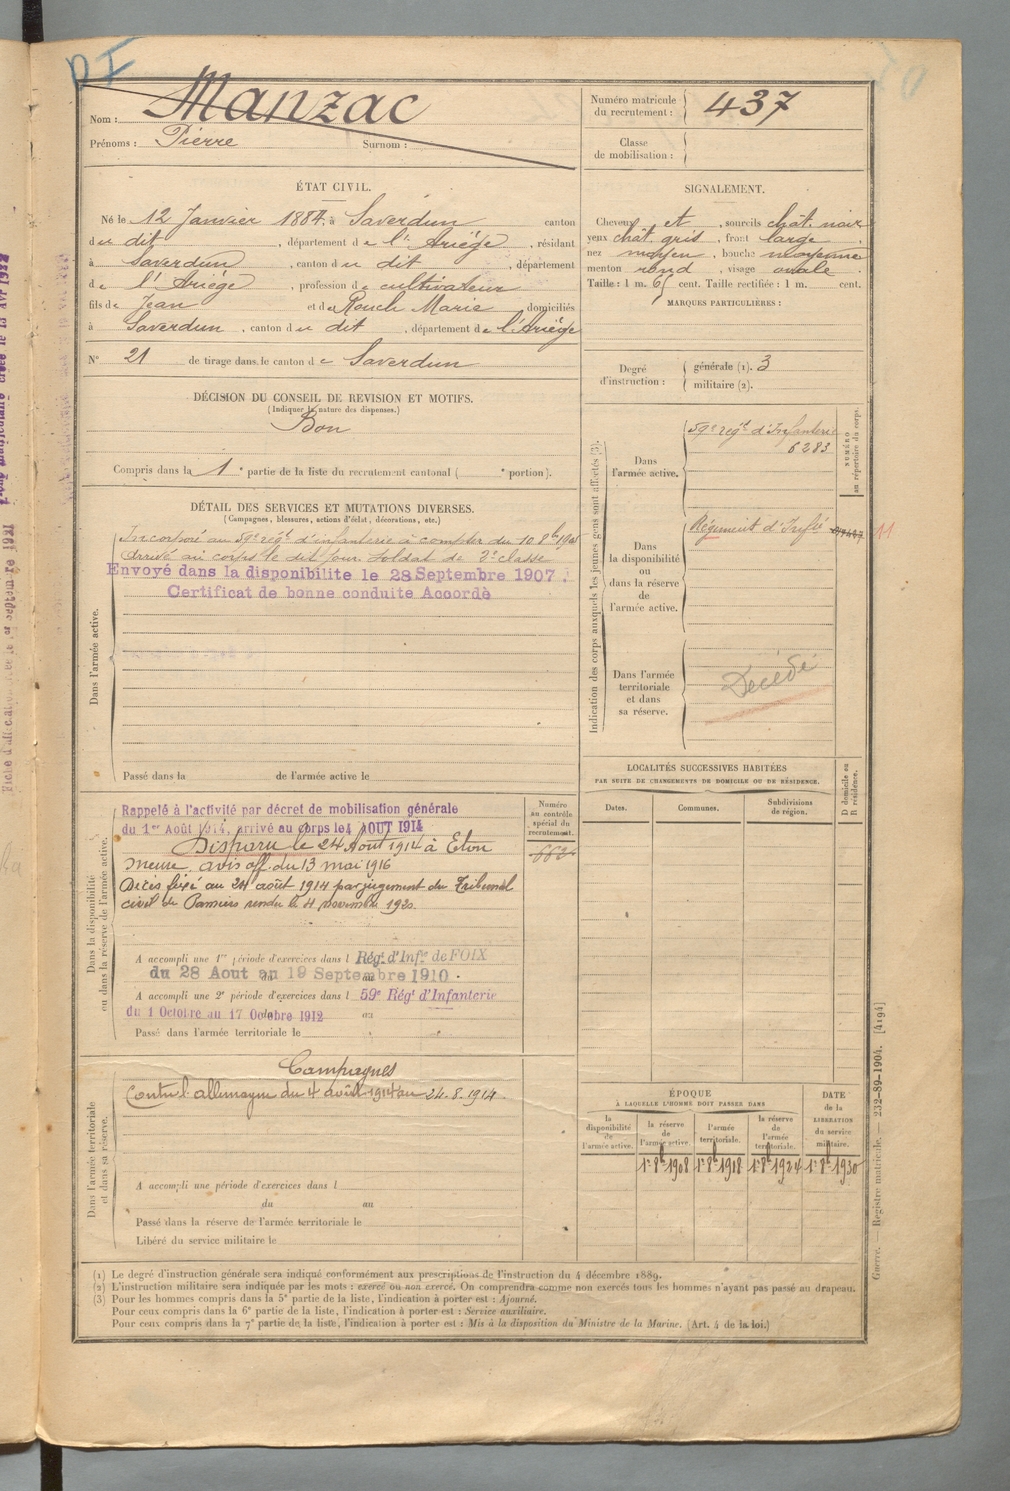 Nom : Manzac
Prénoms : Pierre Surnom :
Numéro matricule du recrutement : 437
Classe de mobilisation :
ÉTAT CIVIL.
Né le 12 Janvier 1884, à Saverdun canton
du dit, département de l'Ariège, résidant
à Saverdun, canton du dit, département
de l'Ariège, profession de cultivateur
fils de Jean et de Rouch Marie domiciliés
à Saverdun, canton du dit, département de l'Ariège
N° 21 de tirage dans le canton de Saverdun
SIGNALEMENT.
Cheveux et, sourcils chât. noir
yeux chât. gris, front large,
nez moyen, bouche moyenne
menton rond, visage ovale
Taille : 1 m. 65 cent. Taille rectifiée : 1 m. cent.
MARQUES PARTICULIÈRES :
Degré d'instruction : générale (1). 3
militaire (2).
DÉCISION DU CONSEIL DE REVISION ET MOTIFS.
(Indiquer la nature des dispenses.)
Bon
Compris dans la 1e partie de la liste du recrutement cantonal ( e portion).
DÉTAIL DES SERVICES ET MUTATIONS DIVERSES.
(Campagnes, blessures, actions d'éclat, décorations, etc.)
Dans l'armée active.
Incorporé au 59e régt d'infanterie à compter du 10 8bre
Arrivé au corps le dit jour. Soldat de 2e classe
Envoyé dans la disponibilite le 28 Septembre 1907.
Certificat de bonne conduite Accordé
Passé dans la de l'armée active le
Indication des corps auxquels les jeunes gens sont affectés (3).
NUMÉRO au répertoire du corps.
Dans l'armée active.
59e régt d'Infanterie
6283
Dans la disponibilité ou dans la réserve de l'armée active.
Régiment d'Infie 11
Dans l'armée territoriale et dans sa réserve.
Décédé
LOCALITÉS SUCCESSIVES HABITÉES
PAR SUITE DE CHANGEMENTS DE DOMICILE OU DE RÉSIDENCE.
D domicile ou R résidence.
Dates. Communes. Subdivisions de région.
Dans la disponibilité ou dans la réserve de l'armée active.
Numéro au contrôle spécial du recrutement.
Rappelé à l'activité par décret de mobilisation générale
du 1er Août 1914, arrivé au corps le 4 AOUT 1914
Disparu le 24 Août 1914 à Eton
Meuse, avis off. du 13 mai 1916
Décès fixé au 24 août 1914 par jugement du Tribunal
civil de Pamiers rendu le 4 novembre 1920.
A accompli une 1re période d'exercices dans l Rég. d'Infie de FOIX
du 28 Aout au 19 Septembre 1910.
A accompli une 2e période d'exercices dans l 59e Régt d'Infanterie
du 1 Octobre au 17 Octobre 1912
Passé dans l'armée territoriale le
Dans l'armée territoriale et dans sa réserve.
Campagnes
Contre l'allemagne du 4 août 1914 au 24.8.1914
A accompli une période d'exercices dans l
du au
Passé dans la réserve de l'armée territoriale le
Libéré du service militaire le
ÉPOQUE
À LAQUELLE L'HOMME DOIT PASSER DANS
DATE de la LIBERATION du service militaire.
la disponibilité de l'armée active.
la réserve de l'armée active.
l'armée territoriale.
la réserve de l'armée territoriale.
1er 8bre 1908 1er 8bre 1918 1er 8bre 1924 1er 8bre 1930
(1) Le degré d'instruction générale sera indiqué conformément aux prescriptions de l'instruction du 4 décembre 1889.
(2) L'instruction militaire sera indiquée par les mots : exercé ou non exercé. On comprendra comme non exercés tous les hommes n'ayant pas passé au drapeau.
(3) Pour les hommes compris dans la 5e partie de la liste, l'indication à porter est : Ajourné.
Pour ceux compris dans la 6e partie de la liste, l'indication à porter est : Service auxiliaire.
Pour ceux compris dans la 7e partie de la liste, l'indication à porter est : Mis à la disposition du Ministre de la Marine. (Art. 4 de la loi.)
Guerre. — Registre matricule. — 232-89-1904. [4194]